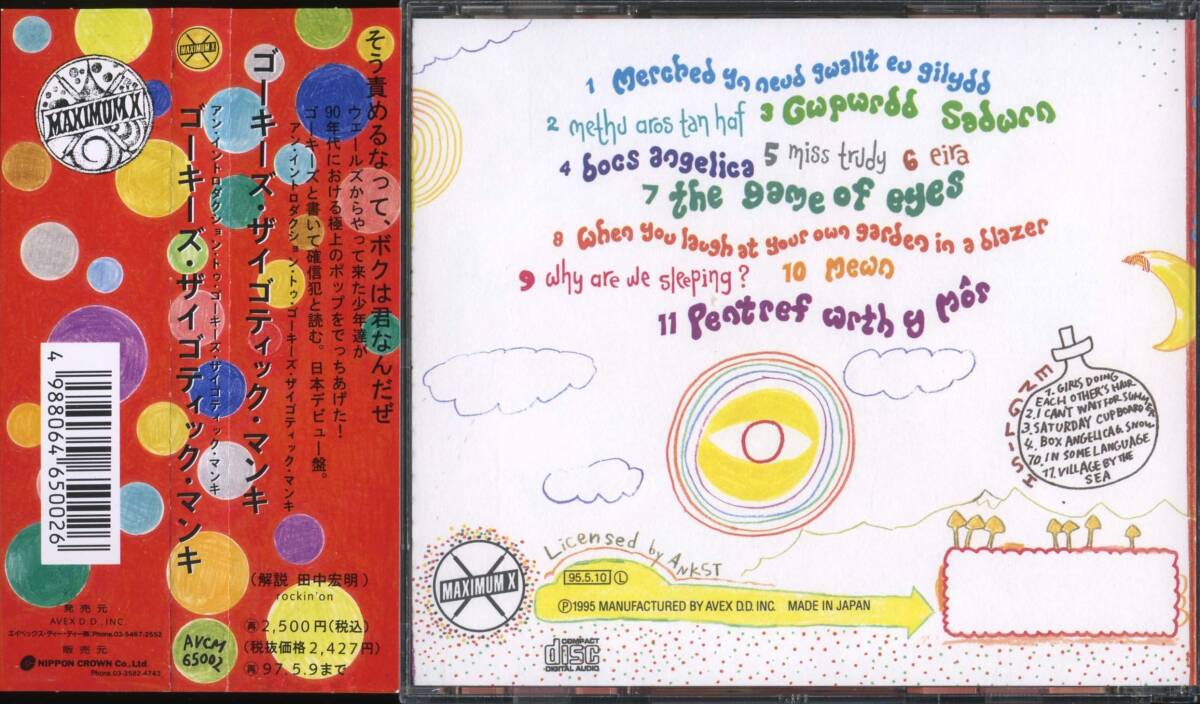 そう責めるなって、ボクは君なんだぜ
ウェールズからやって来た少年達が
90年代における極上のポップをでっちあげた！
ゴーキーズと書いて確信犯と読む。日本デビュー盤。
アン・イントロダクション・トゥ・ゴーキーズ・ザイゴティック・マンキ
ゴーキーズ・ザイゴティック・マンキ
(解説 田中宏明)
rockin'on
再2,500円(税込)
(税抜価格2,427円)
再97.5.9まで
MAXIMUM X
アン・イントロダクション・トゥ・ゴーキーズ・ザイゴティック・マンキ
ゴーキーズ・ザイゴティック・マンキ
AVCM
65002
MAXIMUM X
4 988064 650026
発売元
AVEX D.D., INC.
エイベックス・ディー・ディー(株)Phone.03-5467-2552
販売元
NIPPON CROWN Co., Ltd.
Phone.03-3582-4743
1 Merched yn neud gwallt eu gilydd
2 methu aros tan haf 3 Gwpwrdd Sadwrn
4 bocs angelica 5 miss trudy 6 eira
7 the game of eyes
8 when you laugh at your own garden in a blazer
9 why are we sleeping? 10 Mewn
11 Pentref wrth y Môr
ENGLISH
1. GIRLS DOING
EACH OTHER'S HAIR
2. I CAN'T WAIT FOR SUMMER
3. SATURDAY CUPBOARD
4. BOX ANGELICA 6. SNOW
10. IN SOME LANGUAGE
11. VILLAGE BY THE
SEA
MAXIMUM X
Licensed by ANKST
95.5.10 Ⓛ
Ⓟ1995 MANUFACTURED BY AVEX D.D. INC. MADE IN JAPAN
COMPACT
disc
DIGITAL AUDIO